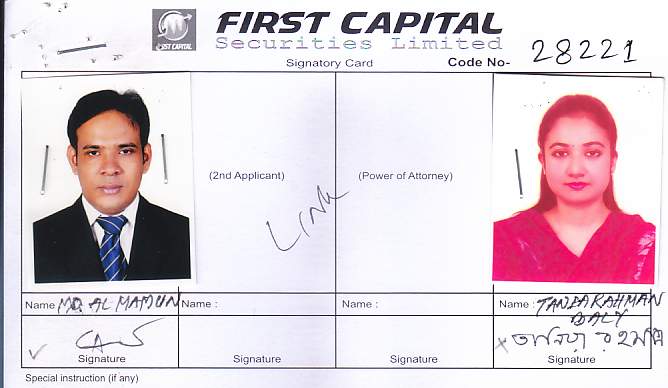 FIRST CAPITAL
FIRST CAPITAL
Securities Limited
Signatory Card
Code No- 28221
(2nd Applicant)
(Power of Attorney)
LINK
Name : MD. AL MAMUN
Name :
Name :
Name : TANIA RAHMAN
DALY
তানিয়া রহমান
Signature
Signature
Signature
Signature
Special instruction (if any)